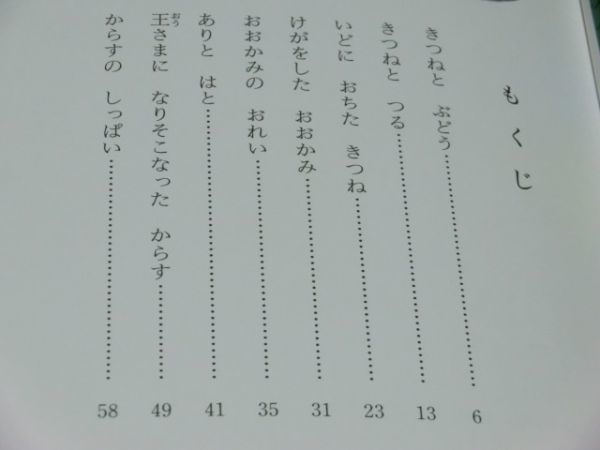 もくじ
きつねと ぶどう……………………………6
きつねと つる……………………………13
いどに おちた きつね……………………………23
けがをした おおかみ……………………………31
おおかみの おれい……………………………35
ありと はと……………………………41
王さまに なりそこなった からす……………………………49
おう
からすの しっぱい……………………………58